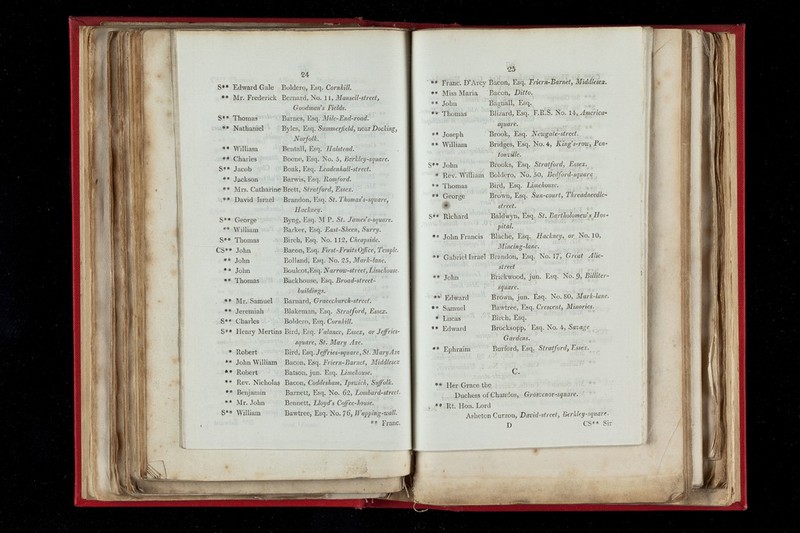 24
S** Edward Gale Boldero, Esq. Cornhill.
** Mr. Frederick Bernard, No. 11, Mansell-street,
Goodman's Fields.
S** Thomas Barnes, Esq. Mile-End-road.
** Nathaniel Byles, Esq. Summerfield, near Docking,
Norfolk.
** William Bentall, Esq. Halstead.
** Charles Boone, Esq. No. 5, Berkley-square.
S** Jacob Bosk, Esq. Leadenhall-street.
** Jackson Barwis, Esq. Romford.
** Mrs. Catharine Brett, Stratford, Essex.
** David Israel Brandon, Esq. St. Thomas's-square,
Hackney.
S** George Byng, Esq. M P. St. James's-square.
** William Barker, Esq. East-Sheen, Surry.
S** Thomas Birch, Esq. No. 112, Cheapside.
CS** John Bacon, Esq. First-Fruits Office, Temple.
** John Bolland, Esq. No. 25, Mark-lane.
** John Boulcot, Esq. Narrow-street, Limehouse.
** Thomas Backhouse, Esq. Broad-street-
buildings.
** Mr. Samuel Barnard, Gracechurch-street.
** Jeremiah Blakeman, Esq. Stratford, Essex.
S** Charles Boldero, Esq. Cornhill.
S** Henry Mertins Bird, Esq. Valance, Essex, or Jeffries-
square, St. Mary Axe.
* Robert Bird, Esq. Jeffries-square, St. Mary Axe
** John William Bacon, Esq. Friern-Barnet, Middlesex
** Robert Batson, jun. Esq. Limehouse.
** Rev. Nicholas Bacon, Coddenham, Ipswich, Suffolk.
** Benjamin Barnett, Esq. No. 62, Lombard-street.
** Mr. John Bennett, Lloyd's Coffee-house.
S** William Bawtree, Esq. No. 76, Wapping-wall.
** Franc.
25
** Franc. D'Arcy Bacon, Esq. Friern-Barnet, Middlesex.
** Miss Maria Bacon, Ditto.
** John Bagnall, Esq.
** Thomas Blizard, Esq. F.R.S. No. 14, America-
square.
** Joseph Brook, Esq. Newgate-street.
** William Bridges, Esq. No. 4, King's-row, Pen-
tonville.
S** John Brooks, Esq. Stratford, Essex.
* Rev. William Boldero, No. 30, Bedford-square
** Thomas Bird, Esq. Limehouse.
** George Brown, Esq. Sun-court, Threadneedle-
street.
S** Richard Baldwyn, Esq. St. Bartholomew's Hos-
pital.
** John Francis Blache, Esq. Hackney, or No. 10,
Mincing-lane.
** Gabriel Israel Brandon, Esq. No. 17, Great Alie-
street
** John Brickwood, jun. Esq. No. 9, Billiter-
square.
** Edward Brown, jun. Esq. No. 80, Mark-lane.
** Samuel Bawtree, Esq. Crescent, Minories.
* Lucas Birch, Esq.
** Edward Brocksopp, Esq. No. 4, Savage
Gardens.
** Ephraim Burford, Esq. Stratford, Essex.
C.
** Her Grace the
Duchess of Chandos, Grosvenor-square.
** Rt. Hon. Lord
Asheton Curzon, David-street, Berkley-square.
D CS** Sir